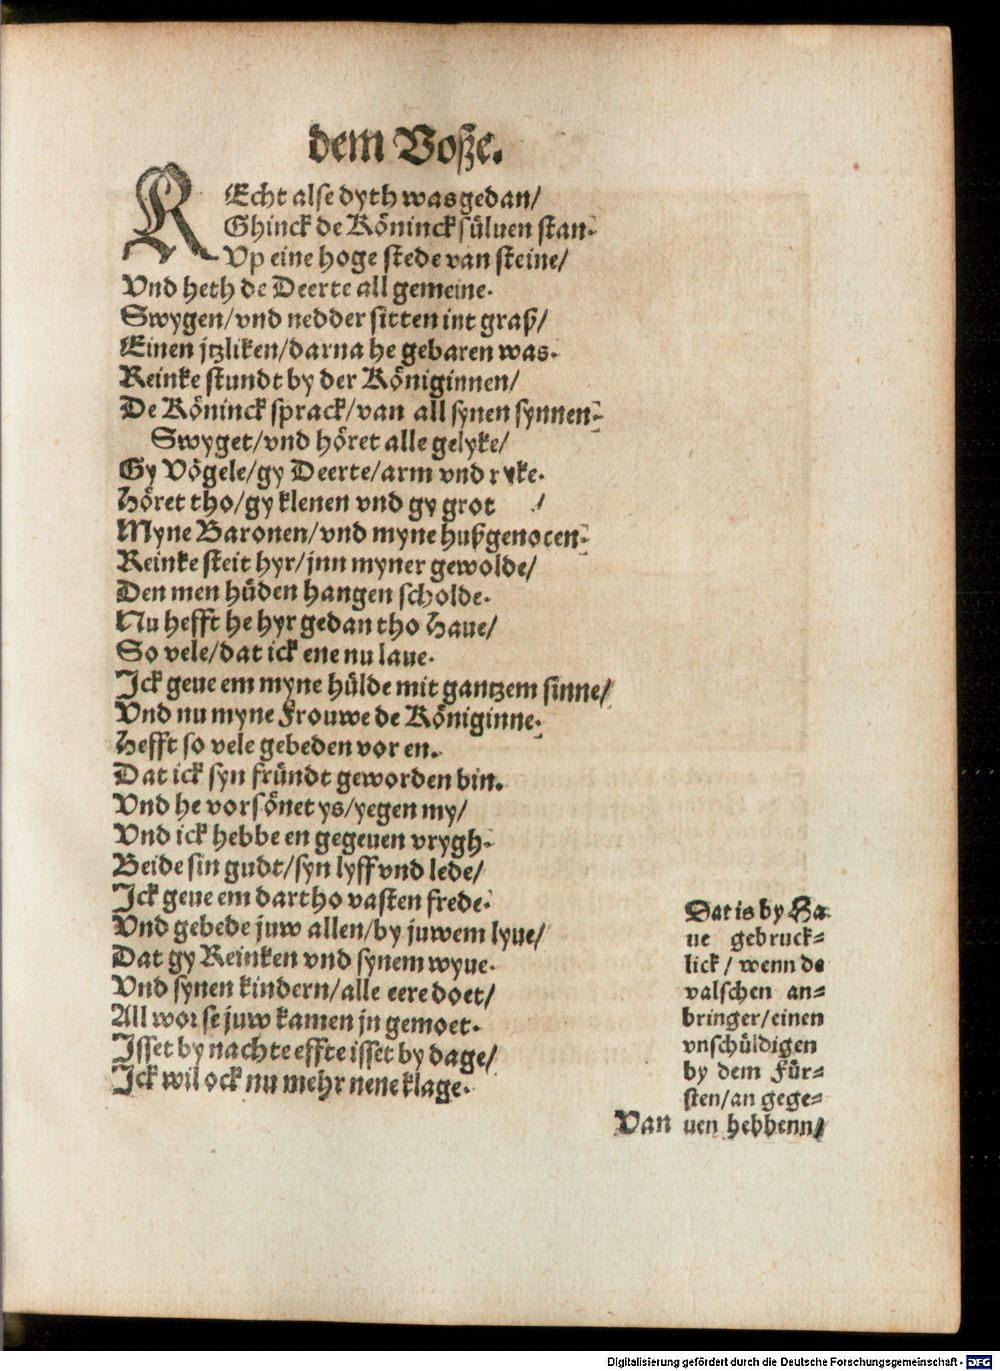 dem Voſze.
REcht alſe dyth was gedan/
Ghinck de Köninck ſüluen ſtan.
Vp eine hoge ſtede van ſteine/
Vnd heth de Deerte all gemeine.
Swygen/vnd nedder ſitten int graß/
Einen jtzliken/darna he gebaren was.
Reinke ſtundt by der Königinnen/
De Köninck ſprack/van all ſynen ſynnen.
Swyget/vnd höret alle gelyke/
Gy Vögele/gy Deerte/arm vnd ryke.
Höret tho/gy klenen vnd gy grot /
Myne Baronen/vnd myne hußgenoten.
Reinke ſteit hyr/jnn myner gewolde/
Den men hüden hangen ſcholde.
Nu hefft he hyr gedan tho Haue/
So vele/dat ick ene nu laue.
Ick geue em myne hülde mit gantzem ſinne/
Vnd nu myne Frouwe de Königinne.
Hefft ſo vele gebeden vor en.
Dat ick ſyn fründt geworden bin.
Vnd he vorſönet ys/yegen my/
Vnd ick hebbe en gegeuen vrygh.
Beide ſin gudt/ſyn lyff vnd lede/
Ick geue em dartho vaſten frede.
Vnd gebede juw allen/by juwem lyue/
Dat gy Reinken vnd ſynem wyue.
Vnd ſynen kindern/alle eere doet/
All wor ſe juw kamen jn gemoet.
Iſſet by nachte effte iſſet by dage/
Ick wil ock nu mehr nene klage.
Dat is by Ha
ue gebruck=
lick / wenn de
valſchen an=
bringer/einen
vnſchüldigen
by dem Für=
ſten/an gege=
uen hebbenn/
Van
Digitalisierung gefördert durch die Deutsche Forschungsgemeinschaft - DFG